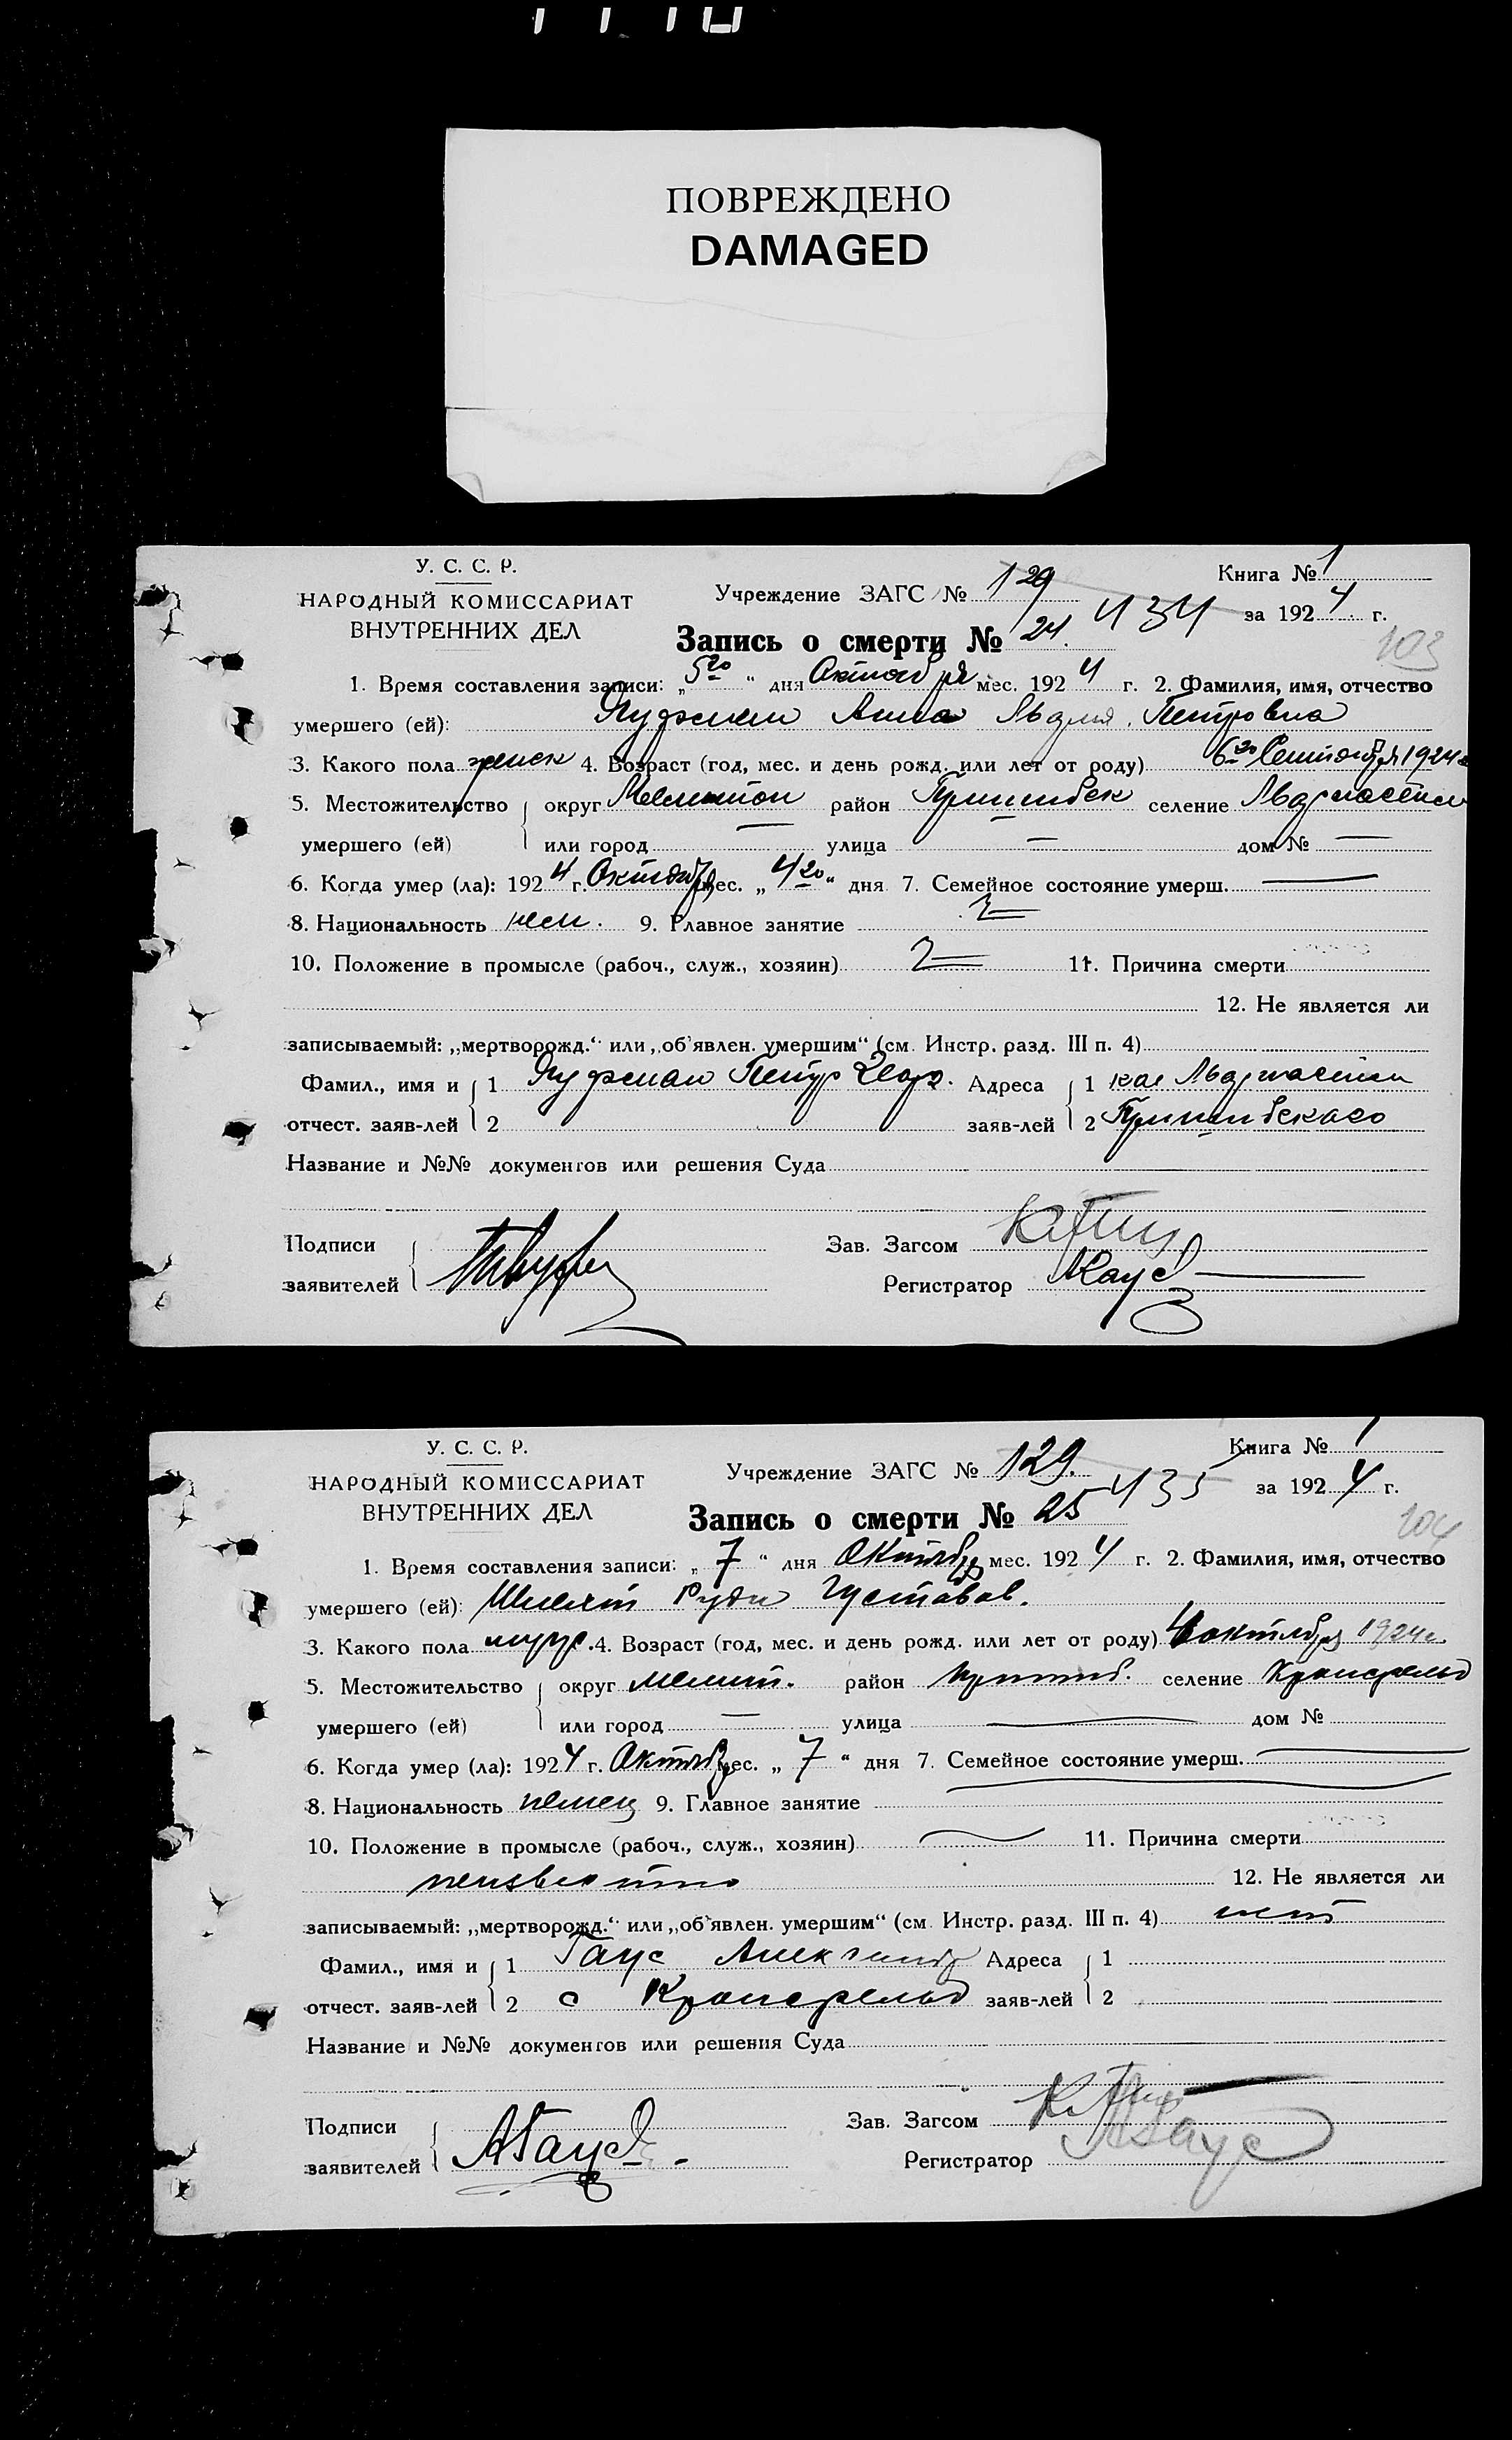 ПОВРЕЖДЕНО
DAMAGED
У. С. С. Р.
НАРОДНЫЙ КОМИССАРИАТ
ВНУТРЕННИХ ДЕЛ
Учреждение ЗАГС № 129
Книга № 1
за 1924 г.
Запись о смерти № 24. 434
103
1. Время составления записи: „5го“ дня Октября мес. 1924 г. 2. Фамилия, имя, отчество
умершего (ей): Анна Петровна
3. Какого пола женск 4. Возраст (год, мес. и день рожд. или лет от роду) 6го Сентября 1924 г
5. Местожительство округ Мелитоп район Пришибск селение
умершего (ей) или город — улица — дом № —
6. Когда умер (ла): 1924 г. Октября мес. „4го“ дня 7. Семейное состояние умерш. —
8. Национальность нем. 9. Главное занятие
10. Положение в промысле (рабоч., служ., хозяин) 11. Причина смерти
12. Не является ли
записываемый: „мертворожд.“ или „об'явлен. умершим“ (см. Инстр. разд. III п. 4)
Фамил., имя и 1 Петр Адреса 1 кол
отчест. заяв-лей 2 заяв-лей 2 Пришибского
Название и №№ документов или решения Суда
Подписи Зав. Загсом
заявителей Регистратор
У. С. С. Р.
НАРОДНЫЙ КОМИССАРИАТ
ВНУТРЕННИХ ДЕЛ
Учреждение ЗАГС № 129.
Книга № 1
за 1924 г.
Запись о смерти № 25 435
104
1. Время составления записи: „7“ дня Октября мес. 1924 г. 2. Фамилия, имя, отчество
умершего (ей): Руди Густавов.
3. Какого пола муж. 4. Возраст (год, мес. и день рожд. или лет от роду) 4 октября 1924 г.
5. Местожительство округ мелит. район пришиб. селение Кронсфельд
умершего (ей) или город — улица — дом №
6. Когда умер (ла): 1924 г. Октября мес. „7“ дня 7. Семейное состояние умерш. —
8. Национальность немец 9. Главное занятие —
10. Положение в промысле (рабоч., служ., хозяин) — 11. Причина смерти
неизвестно 12. Не является ли
записываемый: „мертворожд.“ или „об'явлен. умершим“ (см. Инстр. разд. III п. 4) нет
Фамил., имя и 1 Гаус Александр Адреса 1
отчест. заяв-лей 2 с Кронсфельд заяв-лей 2
Название и №№ документов или решения Суда
Подписи Зав. Загсом
заявителей АГаус Регистратор